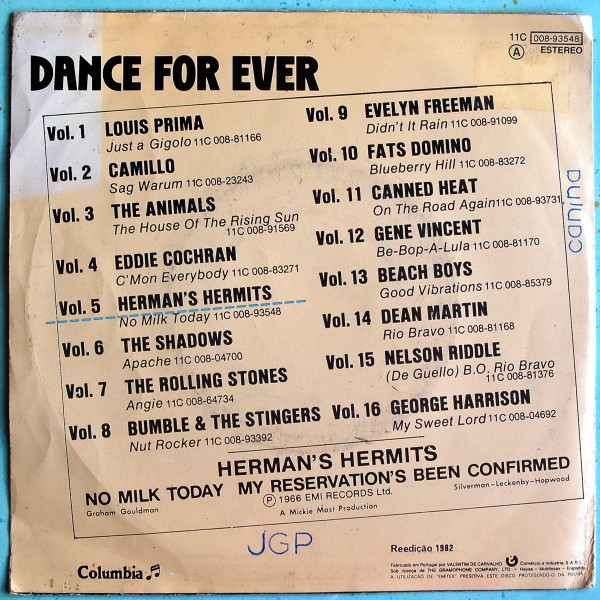 11C 008-93548
A ESTEREO
DANCE FOR EVER
Vol. 1 LOUIS PRIMA
Just a Gigolo 11C 008-81166
Vol. 2 CAMILLO
Sag Warum 11C 008-23243
Vol. 3 THE ANIMALS
The House Of The Rising Sun
11C 008-91569
Vol. 4 EDDIE COCHRAN
C'Mon Everybody 11C 008-83271
Vol. 5 HERMAN'S HERMITS
No Milk Today 11C 008-93548
Vol. 6 THE SHADOWS
Apache 11C 008-04700
Vol. 7 THE ROLLING STONES
Angie 11C 008-64734
Vol. 8 BUMBLE & THE STINGERS
Nut Rocker 11C 008-93392
Vol. 9 EVELYN FREEMAN
Didn't It Rain 11C 008-91099
Vol. 10 FATS DOMINO
Blueberry Hill 11C 008-83272
Vol. 11 CANNED HEAT
On The Road Again 11C 008-93731
Vol. 12 GENE VINCENT
Be-Bop-A-Lula 11C 008-81170
Vol. 13 BEACH BOYS
Good Vibrations 11C 008-85379
Vol. 14 DEAN MARTIN
Rio Bravo 11C 008-81168
Vol. 15 NELSON RIDDLE
(De Guello) B.O. Rio Bravo
11C 008-81376
Vol. 16 GEORGE HARRISON
My Sweet Lord 11C 008-04692
HERMAN'S HERMITS
NO MILK TODAY MY RESERVATION'S BEEN CONFIRMED
Graham Gouldman
Silverman-Leckenby-Hopwood
Ⓟ 1966 EMI RECORDS Ltd.
A Mickie Most Production
JGP
Reedição 1982
Columbia
Fabricado em Portugal por VALENTIM DE CARVALHO Comércio e Indústria, S.A.R.L.
Sob licença de THE GRAMOPHONE COMPANY, LTD - Hayes - Middlesex - England
A UTILIZAÇÃO DE "EMITEX" PRESERVA ESTE DISCO PROTEGENDO-O DA POEIRA